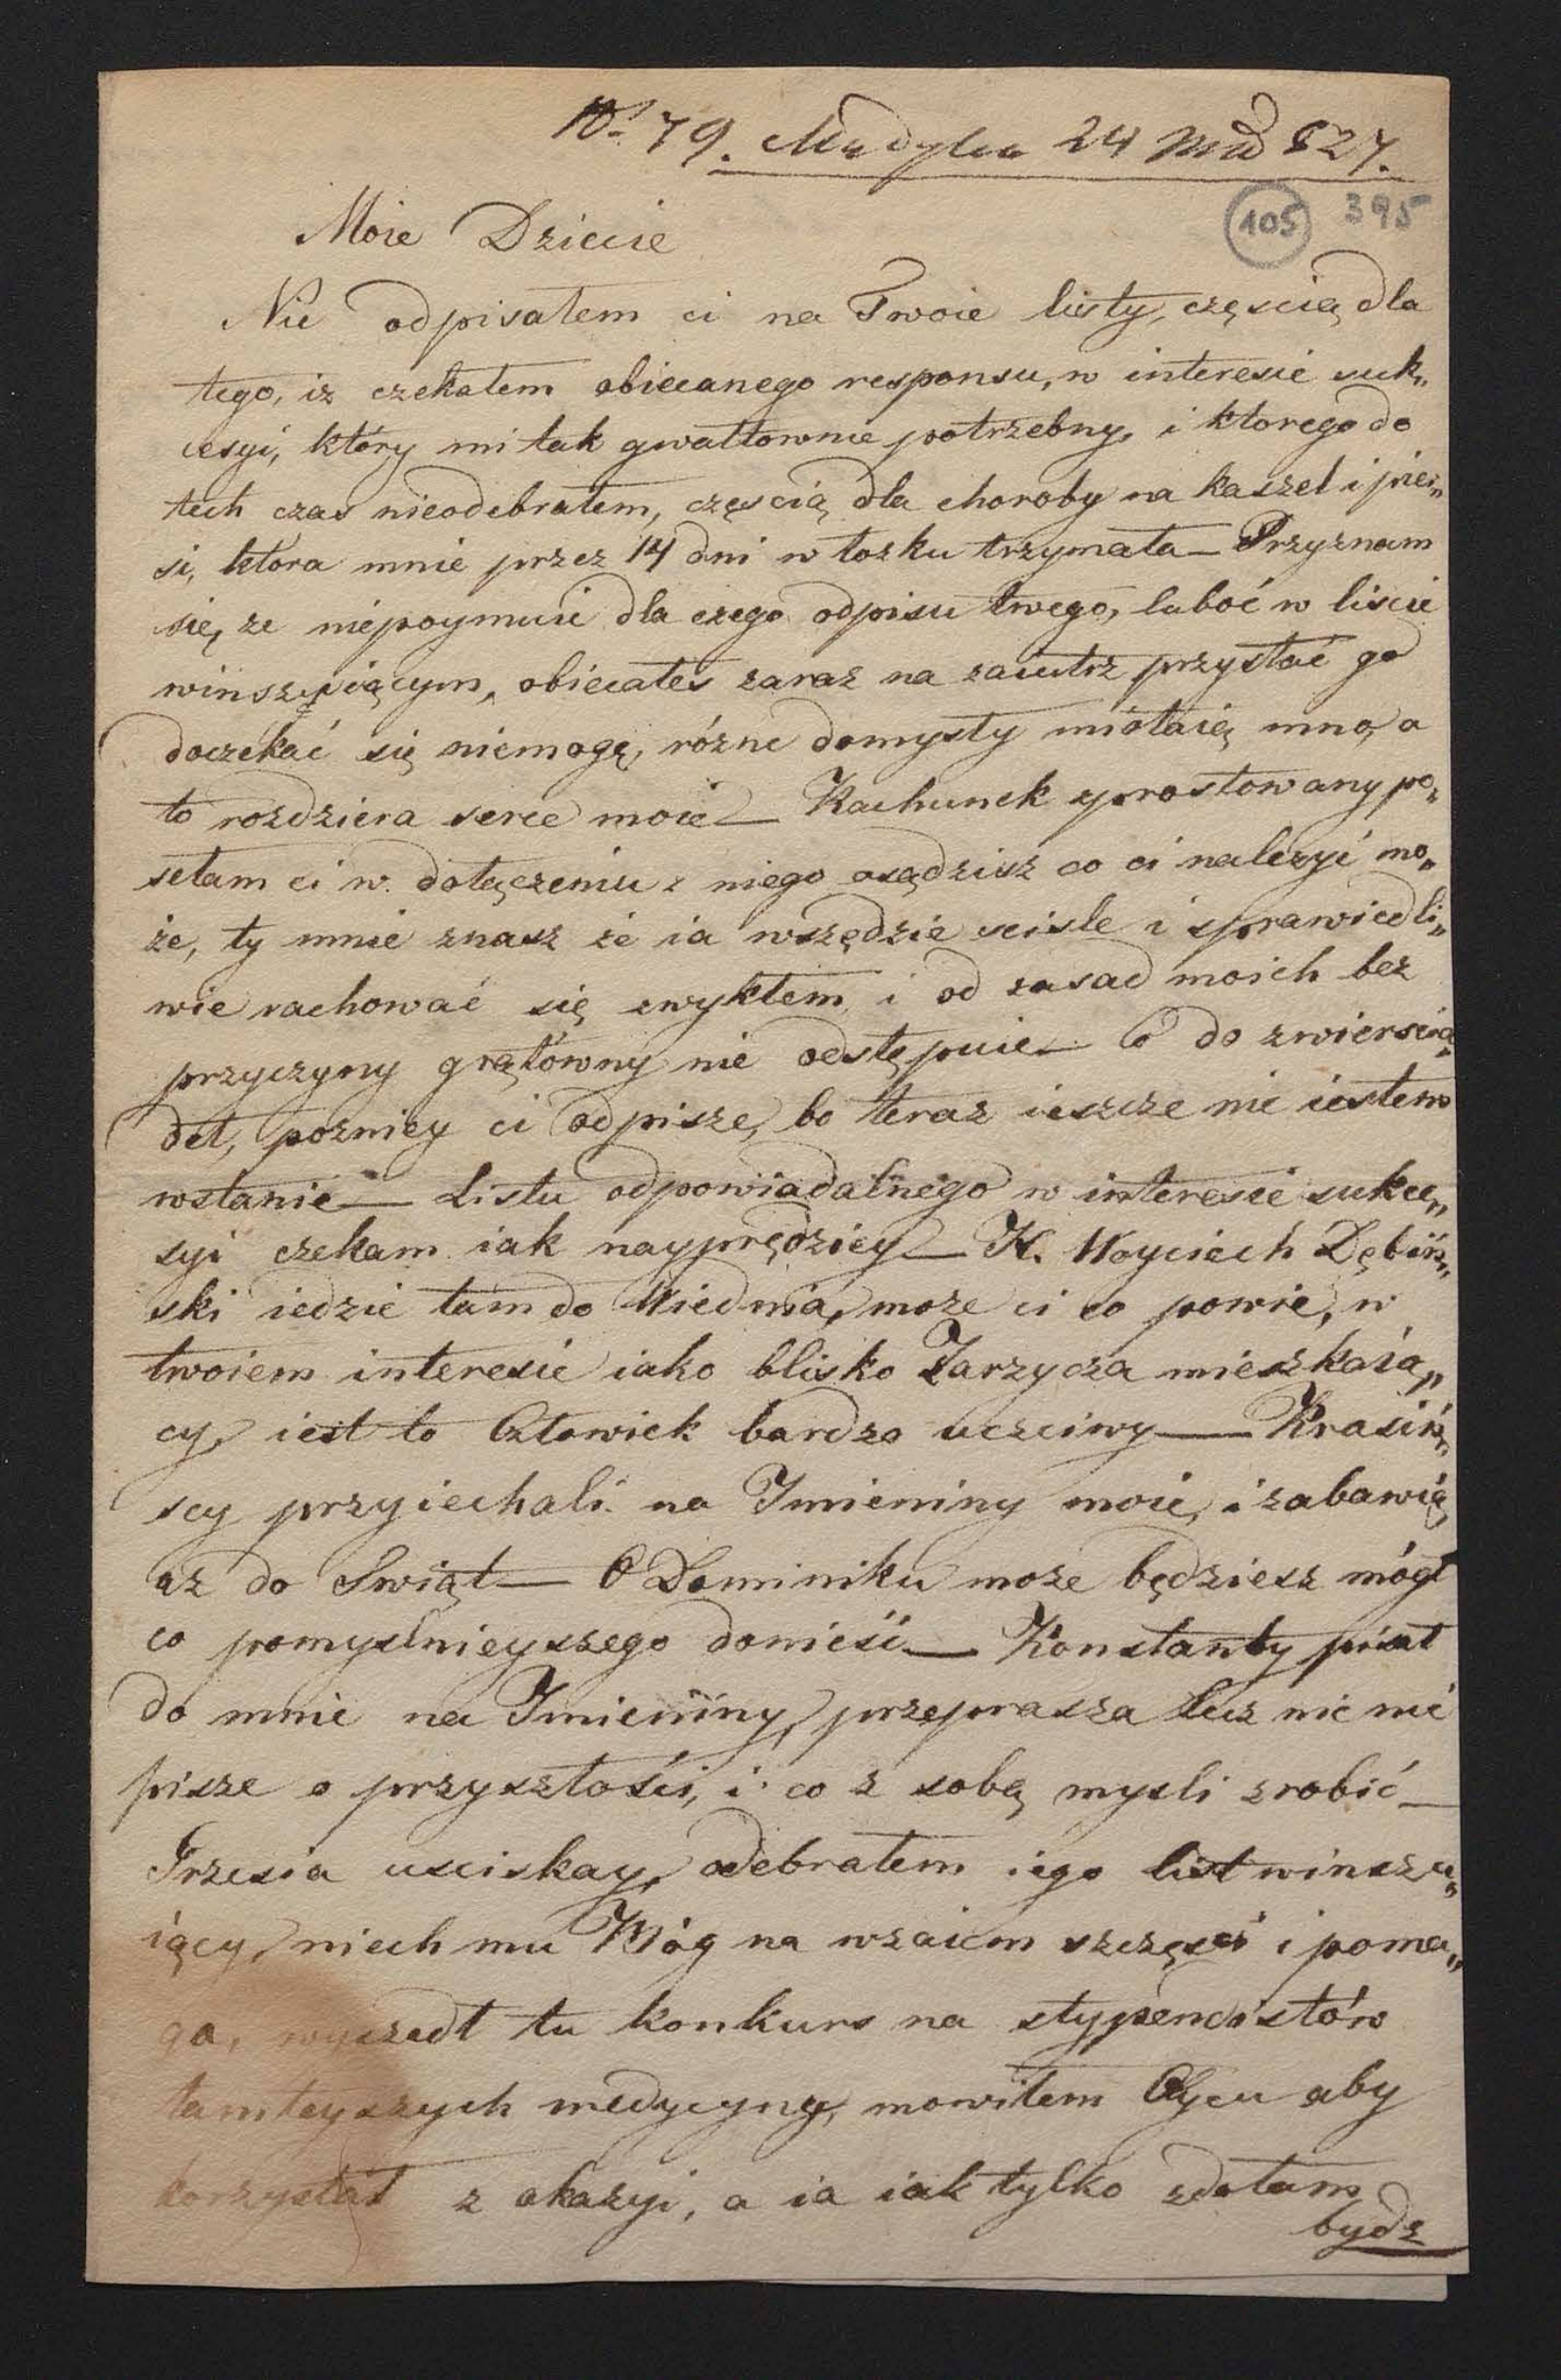 No. 79. Medyka 24 Mad 827.
105 395
Moie Dziecie
Nie odpisałem ci na Twoie listy, częscią dla
tego, iz czekałem obiecanego responsu, w interesie suk„
cesyi, który mi tak gwałtownie potrzebny, i ktorego do
tech czas nieodebrałem, częscią dla choroby na kaszel i pier„
si, która mnie przez 14 dni w łozku trzymała — Przyznam
się, ze niepoymuie dla czego odpisu twego, luboć w liscie
winszuiącym, obiecałes zaraz na zaiutrz przysłać go
doczekać się niemogę, różne domysły miotaią mną, a
to rozdziera serce moie — Rachunek sprostowany po„
sełam ci w dołączeniu z niego osądzisz co ci nalezyć mo„
że, ty mnie znasz że ia wszędzie scisle i sprawiedli„
wie rachować się zwykłem, i od zasad moich bez
przyczyny grątowny nie odstępuie — Co do zwierscia„
deł, pozniey ci odpisze, bo teraz ieszcze nie iestem
wstanie — Listu odpowiadalnego w interesie sukce„
syi czekam iak nayprędziey — K. Woyciech Dębiń„
ski iedzie tam do Wiednia, moze ci co powie, w
twoiem interesie iako blisko Zarzycza mieszkaią„
cy, iest to Człowiek bardzo uczciwy — Krasiń„
scy przyiechali na Imieniny moie, i zabawią
az do Swiąt — O Dominiku moze będziesz mógł
co pomyslnieyszego donieść — Konstanty pisał
do mnie na Imieniny, przeprasza lecz nic nie
pisze o przyszłości, i co z sobą mysli zrobić —
Grzesia usciskay, odebrałem iego list winszu„
iący, niech mu Bóg na wzaiem szczęsci i poma„
ga, wyszedł tu konkurs na stypendistów
tamteyszych medycyny, mowiłem Oycu aby
korzystał z okazyi, a ia iak tylko zdołam
bydz